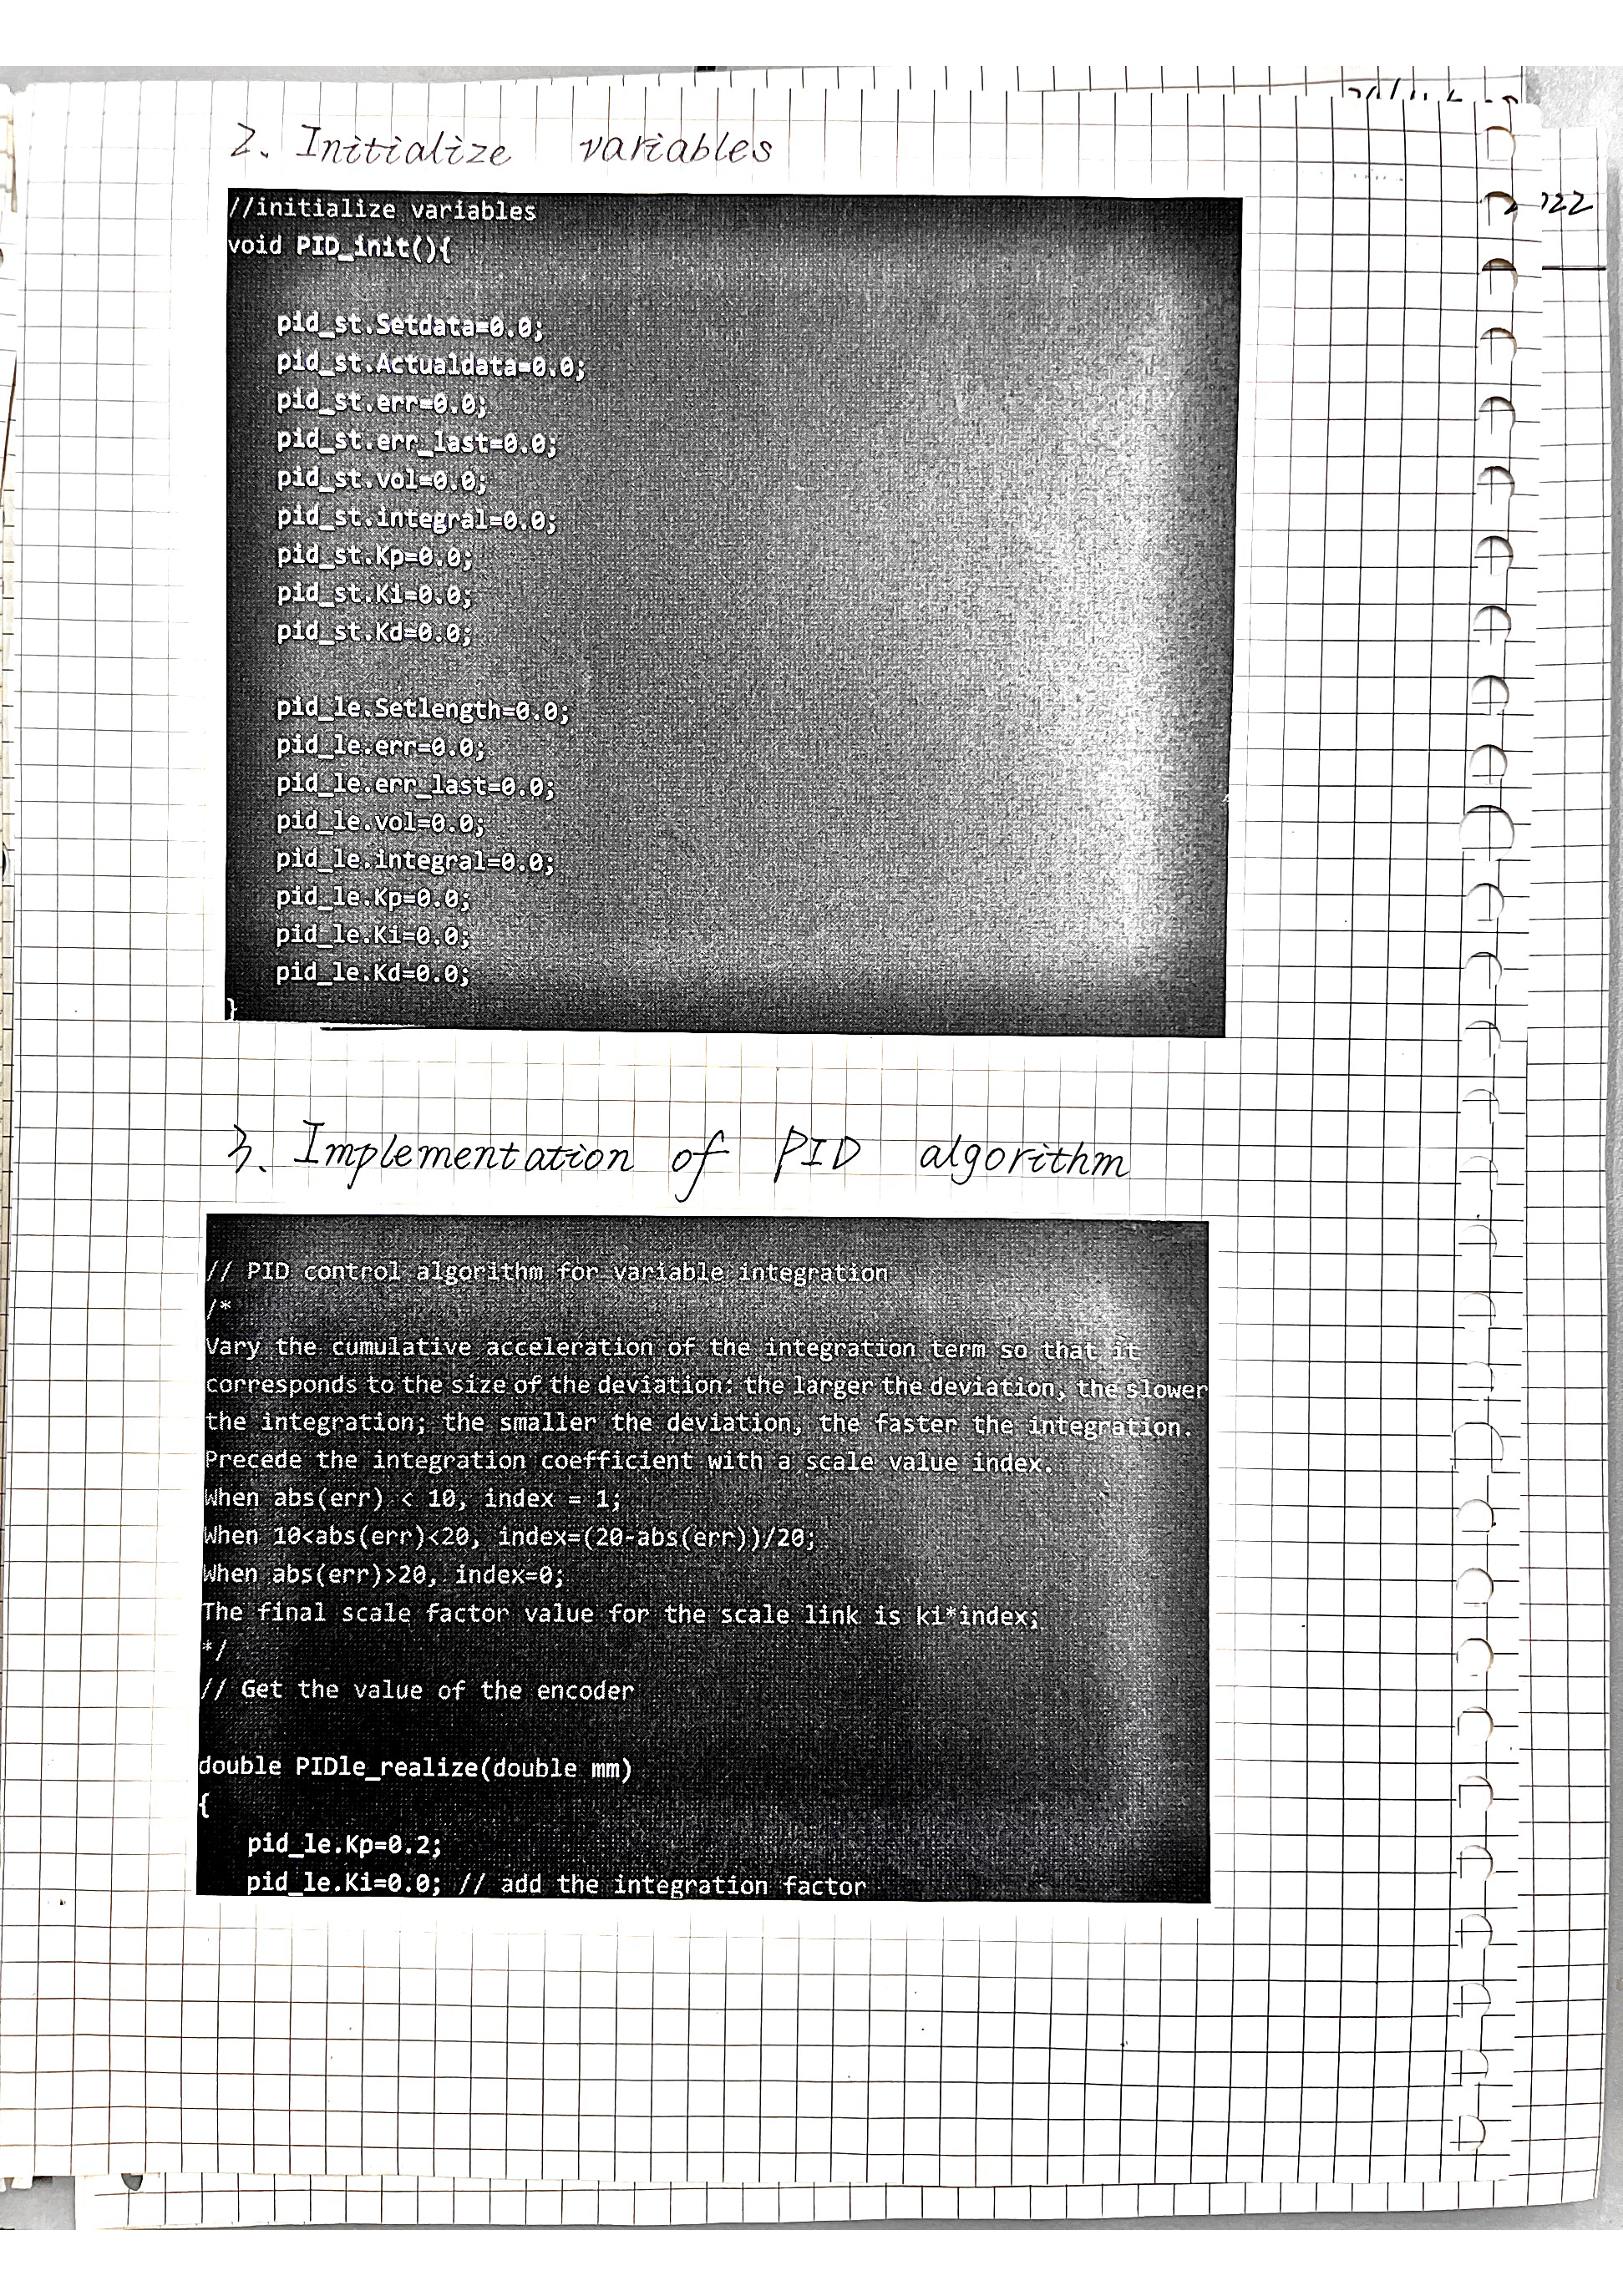 2. Initialize variables
//initialize variables
void PID_init(){
pid_st.Setdata=0.0;
pid_st.Actualdata=0.0;
pid_st.err=0.0;
pid_st.err_last=0.0;
pid_st.vol=0.0;
pid_st.integral=0.0;
pid_st.Kp=0.0;
pid_st.Ki=0.0;
pid_st.Kd=0.0;
pid_le.Setlength=0.0;
pid_le.err=0.0;
pid_le.err_last=0.0;
pid_le.vol=0.0;
pid_le.integral=0.0;
pid_le.Kp=0.0;
pid_le.Ki=0.0;
pid_le.Kd=0.0;
}
3. Implementation of PID algorithm
// PID control algorithm for variable integration
/*
Vary the cumulative acceleration of the integration term so that it
corresponds to the size of the deviation: the larger the deviation, the slower
the integration; the smaller the deviation, the faster the integration.
Precede the integration coefficient with a scale value index.
When abs(err) < 10, index = 1;
When 10<abs(err)<20, index=(20-abs(err))/20;
When abs(err)>20, index=0;
The final scale factor value for the scale link is ki*index;
*/
// Get the value of the encoder
double PIDle_realize(double mm)
{
pid_le.Kp=0.2;
pid_le.Ki=0.0; // add the integration factor